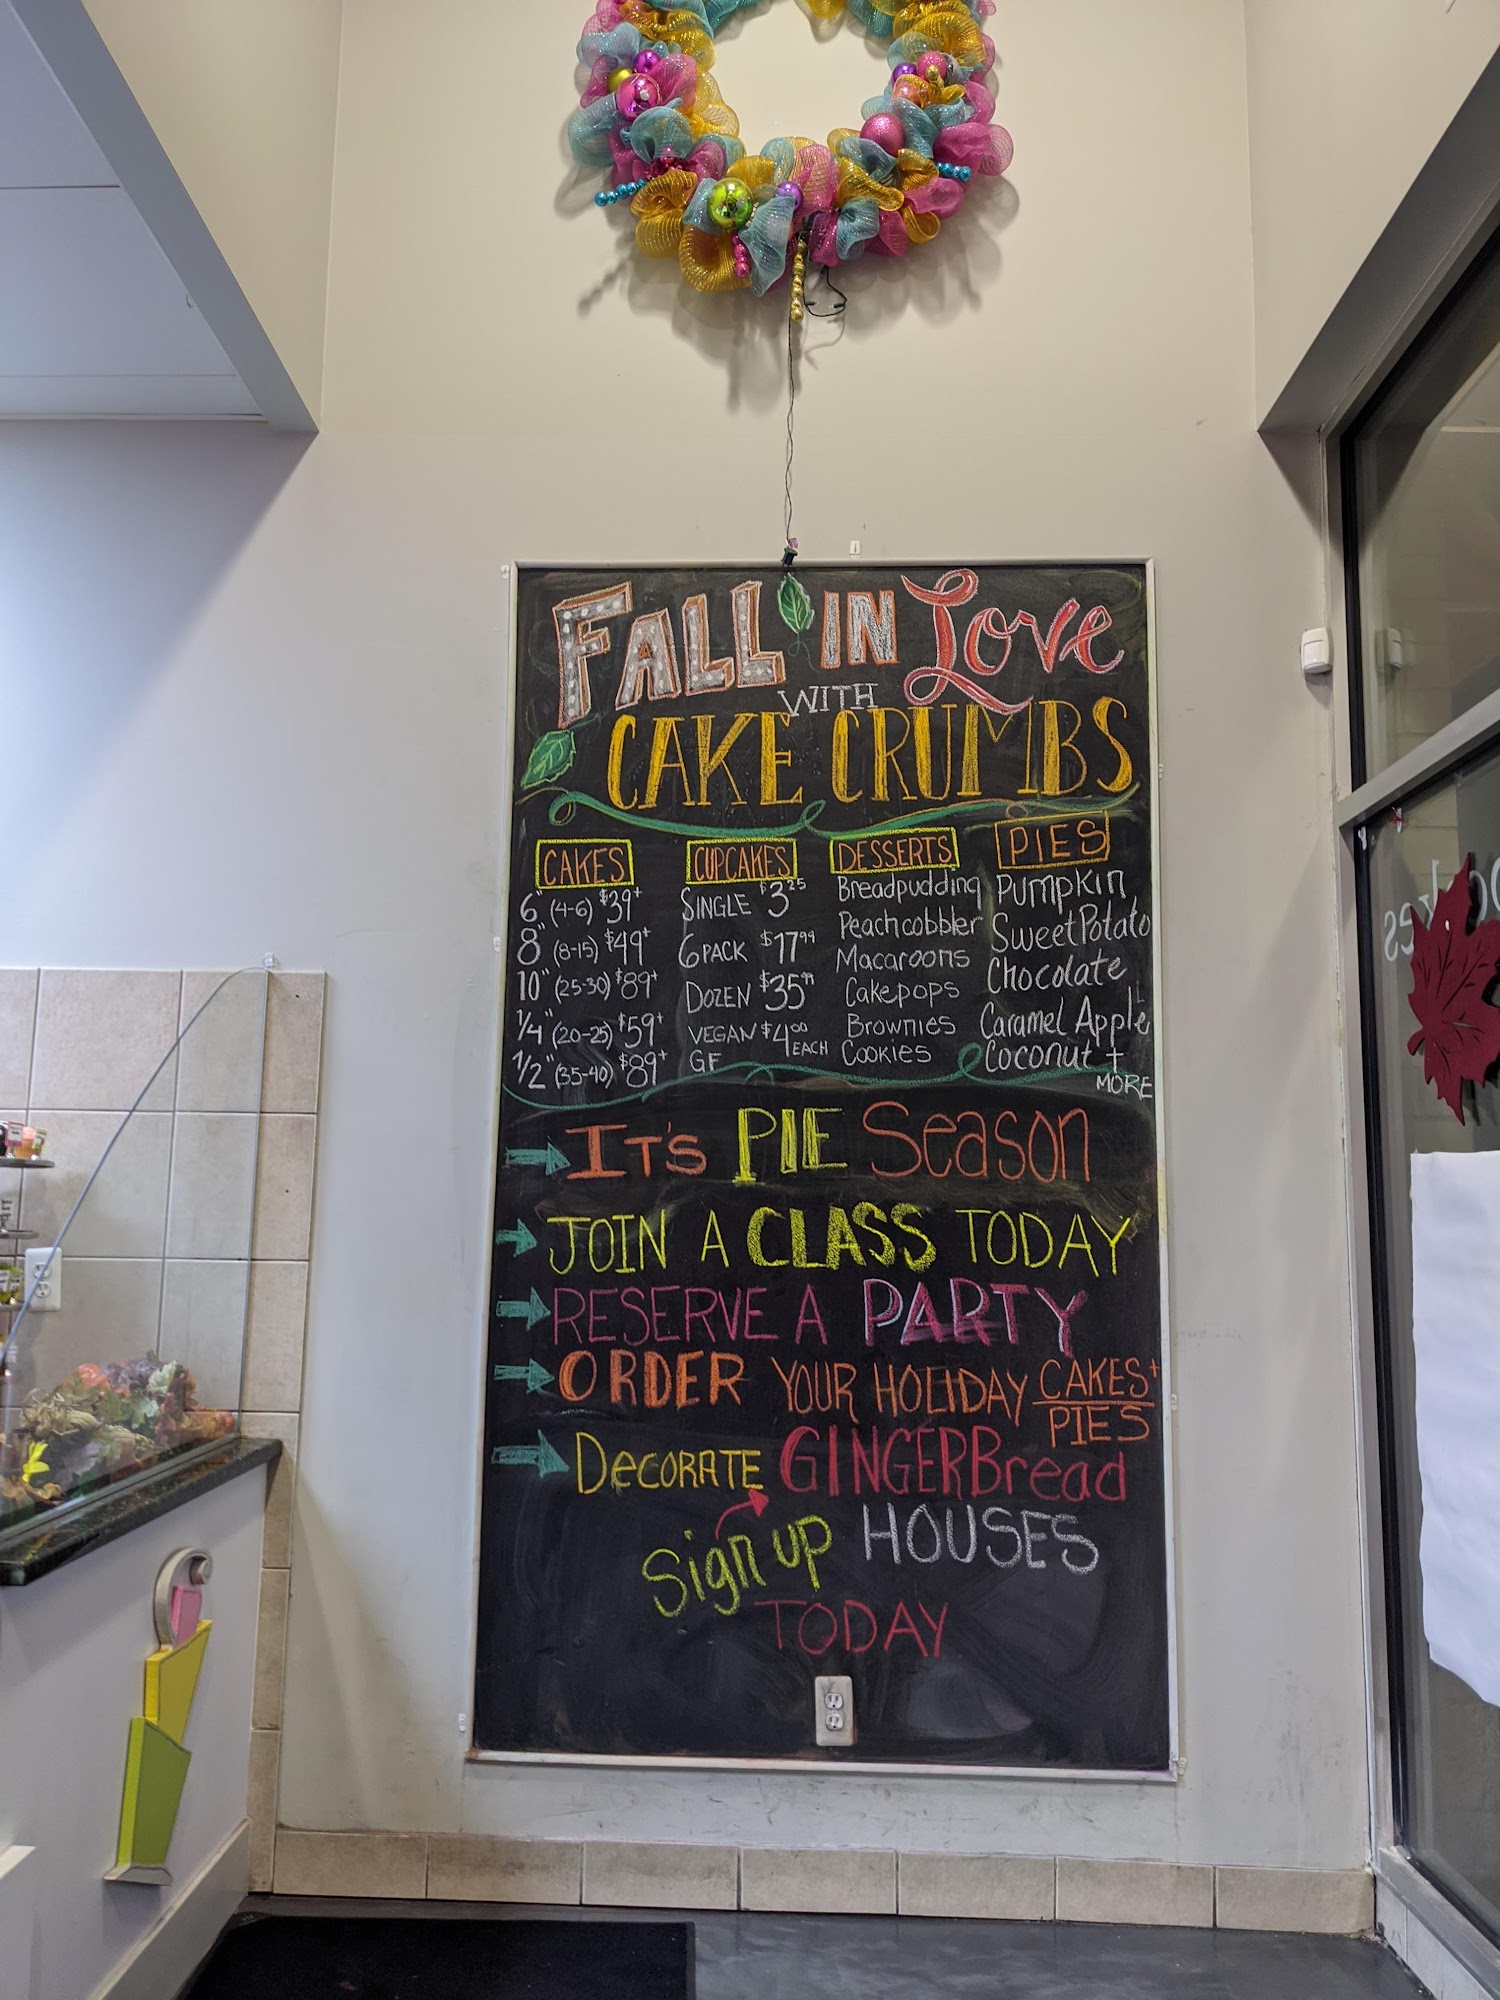 FALL IN Love
WITH
CAKE CRUMBS
CAKES
6" (4-6) $39+
8" (8-15) $49+
10" (25-30) $89+
1/4" (20-25) $59+
1/2" (35-40) $89+
CUPCAKES
SINGLE $3.25
6 PACK $17.99
DOZEN $35.99
VEGAN $4.00 EACH
GF
DESSERTS
Breadpudding
Peach cobbler
Macaroons
Cakepops
Brownies
Cookies
PIES
PUMPKIN
Sweet Potato
Chocolate
Caramel Apple
Coconut +
MORE
IT'S PIE Season
JOIN A CLASS TODAY
RESERVE A PARTY
ORDER YOUR HOLIDAY CAKES + PIES
DECORATE GINGERBread
HOUSES
Sign up
TODAY